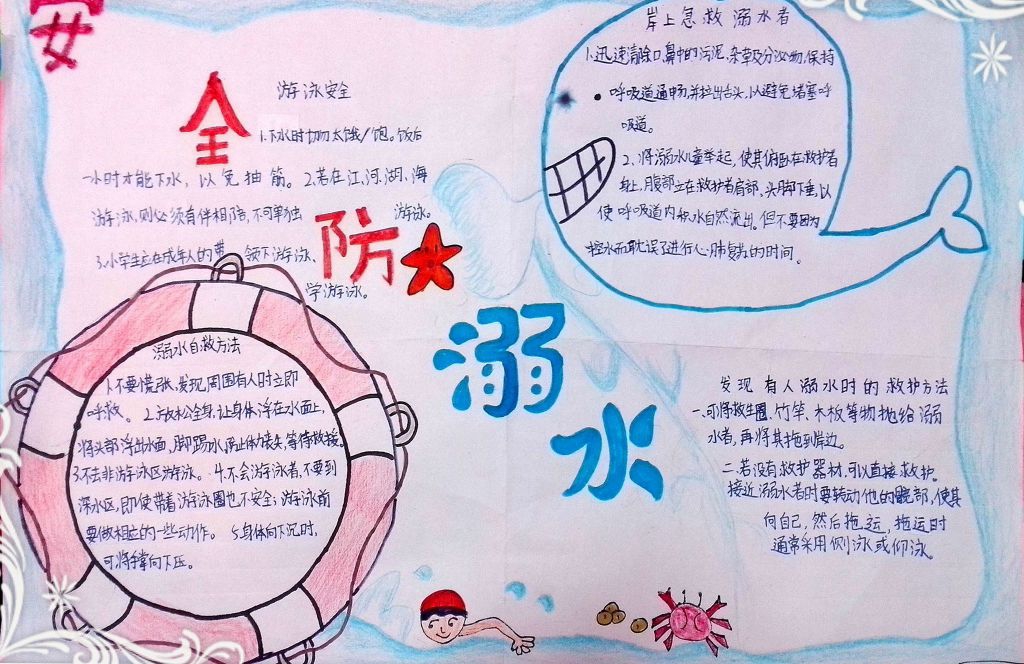 安
全
防
溺
水
游泳安全
1.下水时切勿太饿/饱。饭后
一小时才能下水，以免抽筋。2.若在江、河、湖、海
游泳,则必须有伴相陪,不可单独游泳。
3.小学生应在成年人的带领下游泳、
学游泳。
岸上急救溺水者
1.迅速清除口,鼻中的污泥、杂草及分泌物,保持
呼吸道通畅,并拉出舌头,以避免堵塞呼
吸道。
2、将溺水儿童举起,使其俯卧在救护者
身上,腹部立在救护者肩部,头脚下垂,以
使呼吸道内积水自然流出。但不要因为
控水而耽误了进行心肺复苏的时间。
溺水自救方法
1.不要慌张、发现周围有人时立即
呼救。2.放松全身、让身体浮在水面上,
将头部浮出水面、脚踢水,防止体力丧失,等待救援。
3.不去非游泳区游泳。4.不会游泳者,不要到
深水区,即使带着游泳圈也不安全;游泳前
要做相应的一些动作。5.身体向下沉时,
可将手掌向下压。
发现有人溺水时的救护方法
一、可将救生圈、竹竿、木板等物抛给溺
水者,再将其拖到岸边。
二.若没有救护器材,可以直接救护。
接近溺水者时要转动他的髋部,使其
向自己,然后拖运,拖运时
通常采用侧泳或仰泳。